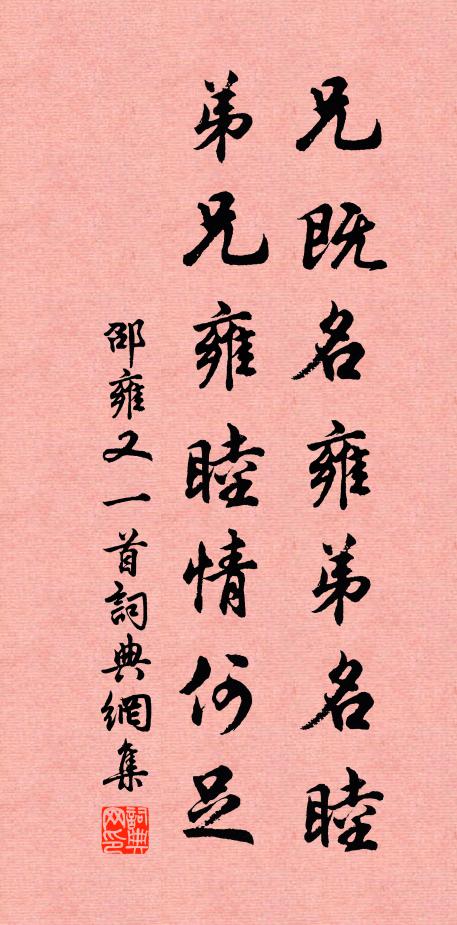 兄既名雍弟名睦
弟兄雍睦情何足
邵雍又一首詞典網集
詞典网印